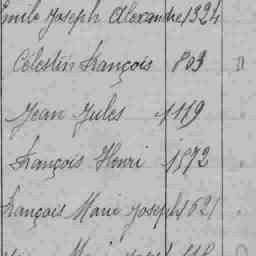 Emile Joseph Alexandre 1324
Célestin François 803
Jean Jules 1119
François Henri 1872
François Marie Joseph 1621
Marie